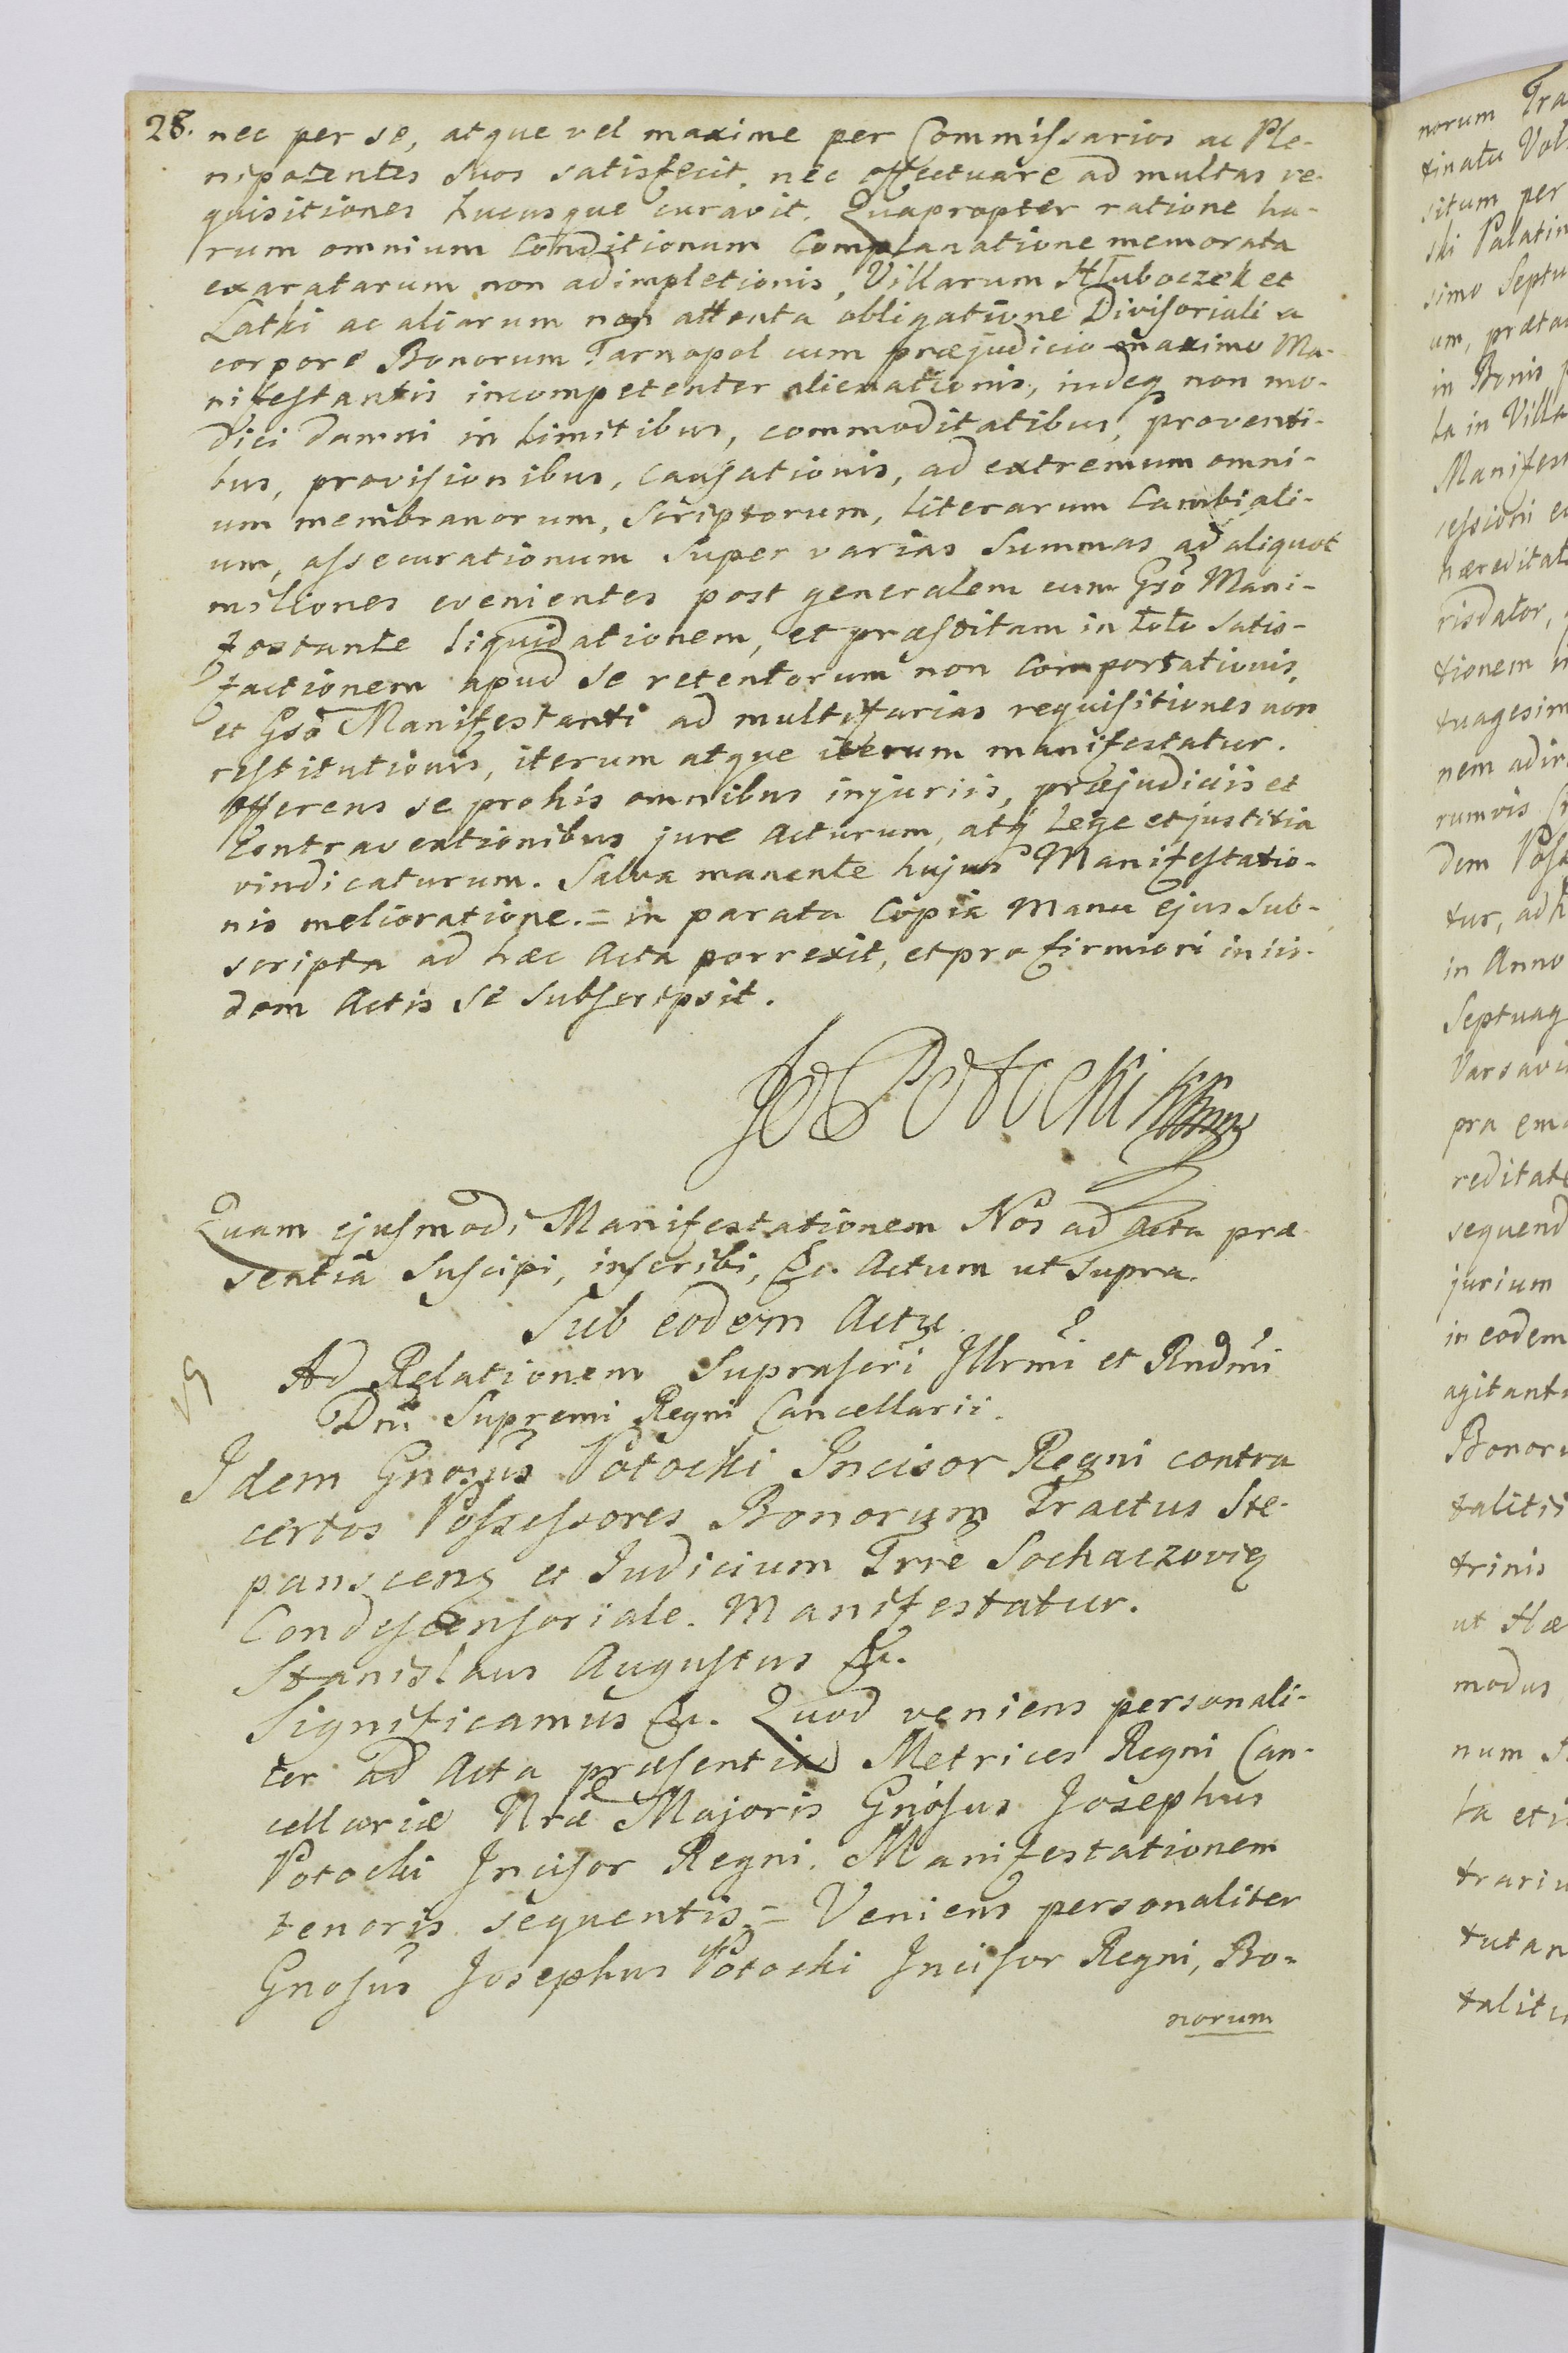 28. nec per se, atque vel maxime per Commissarios ac Ple-
nipotentes Suos satisfecit. nec effectuare ad multas re-
quisitiones hucusque curavit. Quapropter ratione ha-
rum omnium Conditionum Complanatione memorata
exaratarum non adimpletionis, Villarum Hluboczek et
Latki ac aliarum non attenta obligatione Divisoriali a
corpore Bonorum Tarnopol cum præjudicio maximo Ma-
nifestantis incompetenter alienationis, indeq non mo-
dici damni in limitibus, commoditatibus, proventi-
bus, provisionibus, causationis, ad extremum omni-
um membranorum, Scriptorum, literarum Cambiali-
um, assecurationum Super varias Summas ad aliquot
miliones evenientes post generalem cum Gso Mani-
festante liquidationem, et præstitam in toto Satis-
factionem apud Se retentorum non Comportationis,
et Gso Manifestanti ad multifarias requisitiones non
restitutionis, iterum atque iterum manifestatur.
offerens se pro his omnibus injuriis, præjudiciis et
Contraventionibus jure Acturum, atq Lege et justitia
vindicaturum. Salva manente hujus Manifestatio-
nis melioratione. = in parata Copia Manu ejus Sub-
scripta ad hæc Acta porrexit, et pro firmiori in iis-
dem Actis Se Subscripsit.
Potocki
Quam ejusmodi Manifestationem Nos ad Acta præ
sentia Suscipi, inscribi, &c. Actum ut Supra.
Sub eodem Actu.
Ad Relationem Suprascri Illrmi et Rndmi
Dni Supremi Regni Cancellarii.
Idem Gnosus Potocki Incisor Regni contra
certos Possessores Bonorum Tractus Ste-
pansceng et Iudicium Trre Sochaczovieg
Condescensoriale. Manifestatur.
Stanislaus Augustus &c.
Significamus &c. Quod veniens personali-
ter ad Acta præsentia Metrices Regni Can-
cellariæ Nræ Majoris Gnosus Josephus
Potocki Incisor Regni. Manifestationem
tenoris sequentis = Veniens personaliter
Gnosus Josephus Potocki Incisor Regni, Bo-
norum
norum Tra
tinatu Vol
situm per
ski Palatin
simo Septu
um, præta
in Bonis
ta in Vill
Manifes
cessioni
hæreditat
risdator,
tionem
tuagesim
nem adi
rumvis
dem Pos
tur, ad h
in Anno
Septuag
Varsavi
pra em
reditat
sequend
jurium
in eodem
agitant
Bonor
talitii
trinis
ut Hæ
modus
num
ta et
trariu
tutan
talit